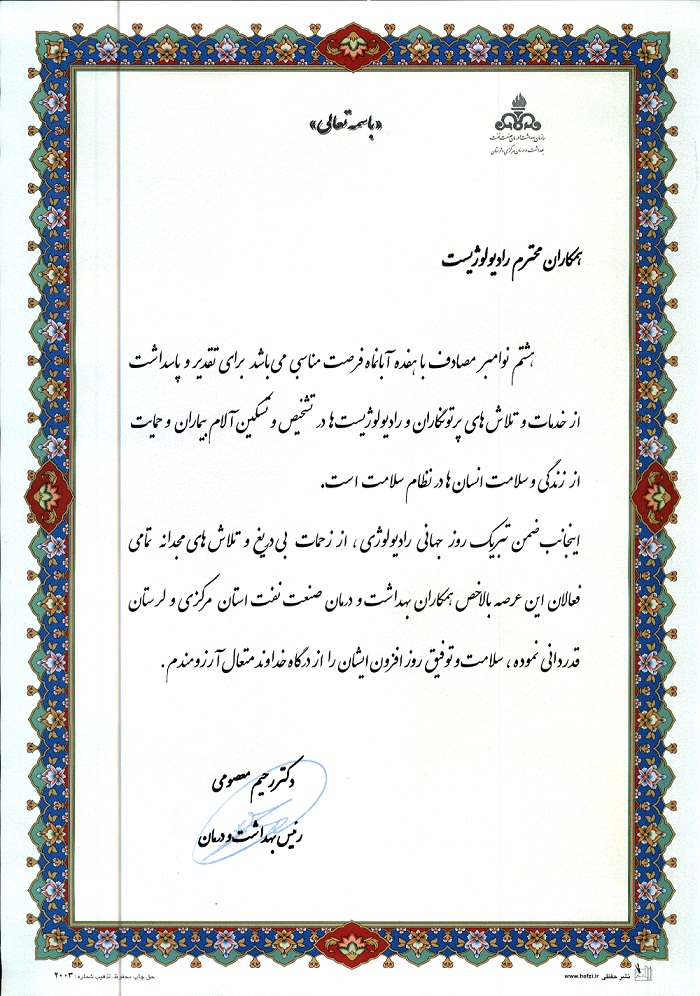 «باسمه تعالی»
سازمان بهداشت و درمان صنعت نفت
بهداشت و درمان مرکزی و لرستان
همکاران محترم رادیولوژیست
هشتم نوامبر مصادف با هفده آبانماه فرصت مناسبی می باشد برای تقدیر و پاسداشت
از خدمات و تلاش های پرتونگاران و رادیولوژیست ها در تشخیص و تسکین آلام بیماران و حمایت
از زندگی و سلامت انسان ها در نظام سلامت است.
اینجانب ضمن تبریک روز جهانی رادیولوژی ، از زحمات بی دریغ و تلاش های مجدانه تمامی
فعالان این عرصه بالاخص همکاران بهداشت و درمان صنعت نفت استان مرکزی و لرستان
قدردانی نموده ، سلامت و توفیق روز افزون ایشان را از درگاه خداوند متعال آرزومندم .
دکتر رحیم معصومی
رئیس بهداشت و درمان
نشر حفظی www.hefzi.ir
حق چاپ محفوظ. تذهیب شماره: ۲۰۰۳